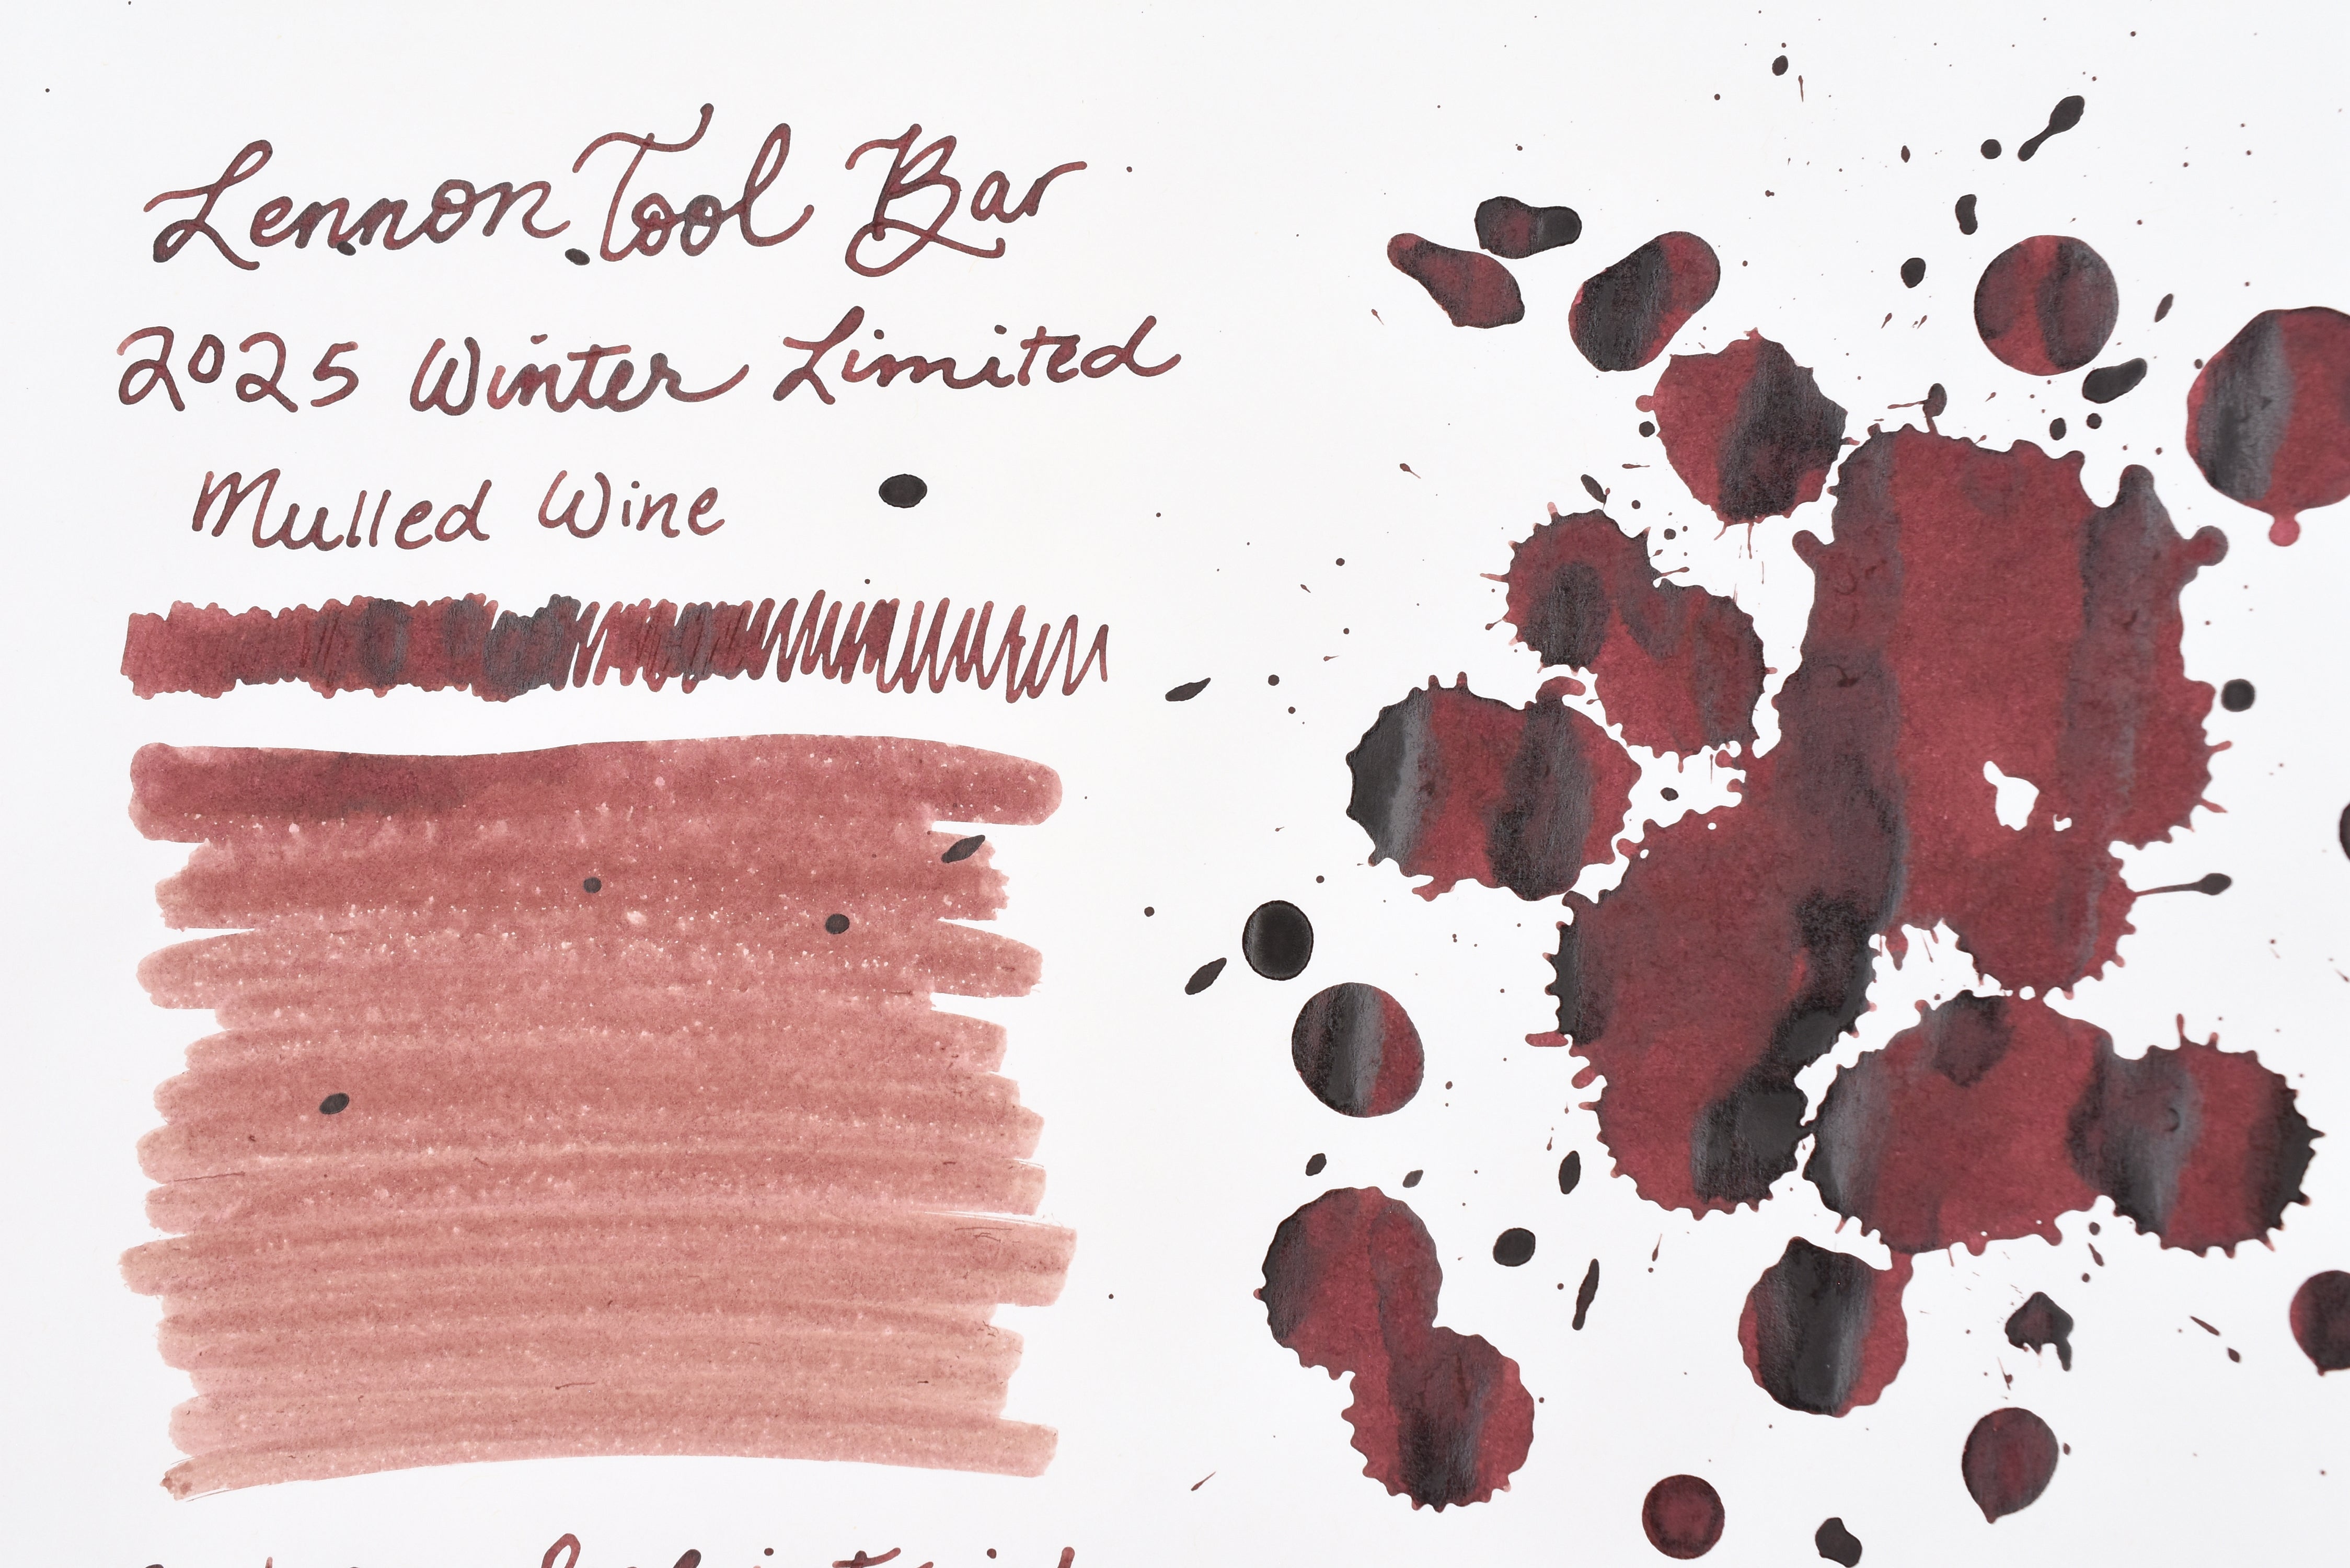 Lennon Tool Bar
2025 Winter Limited
Mulled Wine